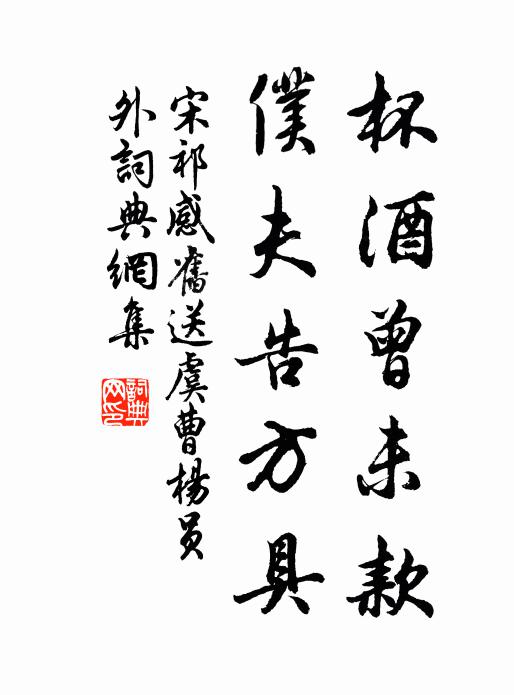 杯酒曾未款
僕夫告方具
宋祁感舊送虞曹楊員
外詞典網集
詞典网印